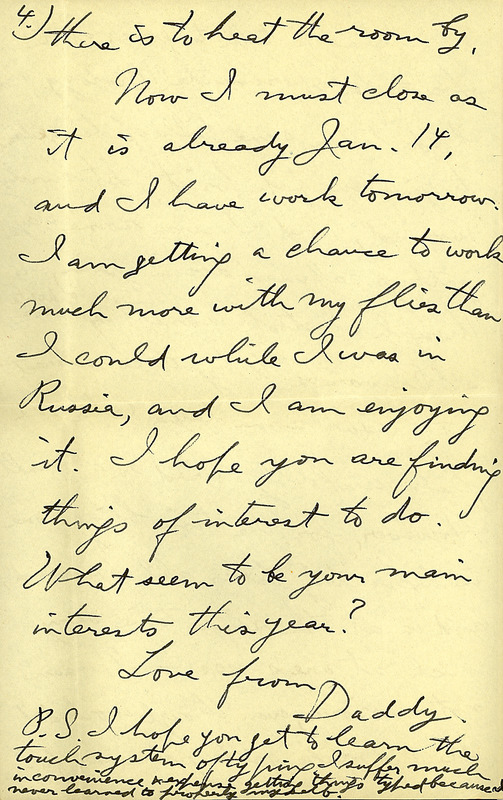 4.) there is to heat the room by.
Now I must close as
it is already Jan. 14,
and I have work tomorrow.
I am getting a chance to work
much more with my flies than
I could while I was in
Russia, and I am enjoying
it. I hope you are finding
things of interest to do.
What seem to be your main
interests this year?
Love from
Daddy.
P.S. I hope you get to learn the
touch system of typing. I suffer much
inconvenience getting things typed because I
never learned to properly myself.